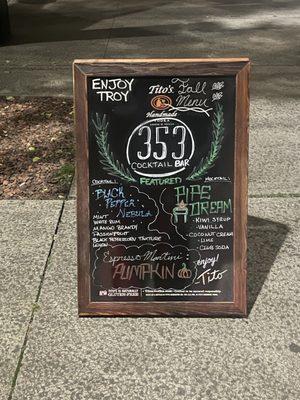 ENJOY
TROY
Tito's
Handmade
VODKA
Fall
Menu
353
COCKTAIL BAR
FEATURED
COCKTAIL:
MOCKTAIL:
Black
Pepper
Nebula
MINT
WHITE RUM
MANGO BRANDY
PASSIONFRUIT
BLACK PEPPERCORN TINCTURE
LEMON
PIPE
DREAM
- KIWI SYRUP
- VANILLA
- COCONUT CREAM
- LIME
- CLUB SODA
Espresso Martini
PUMPKIN
enjoy!
Tito
TITO'S IS NATURALLY
GLUTEN-FREE